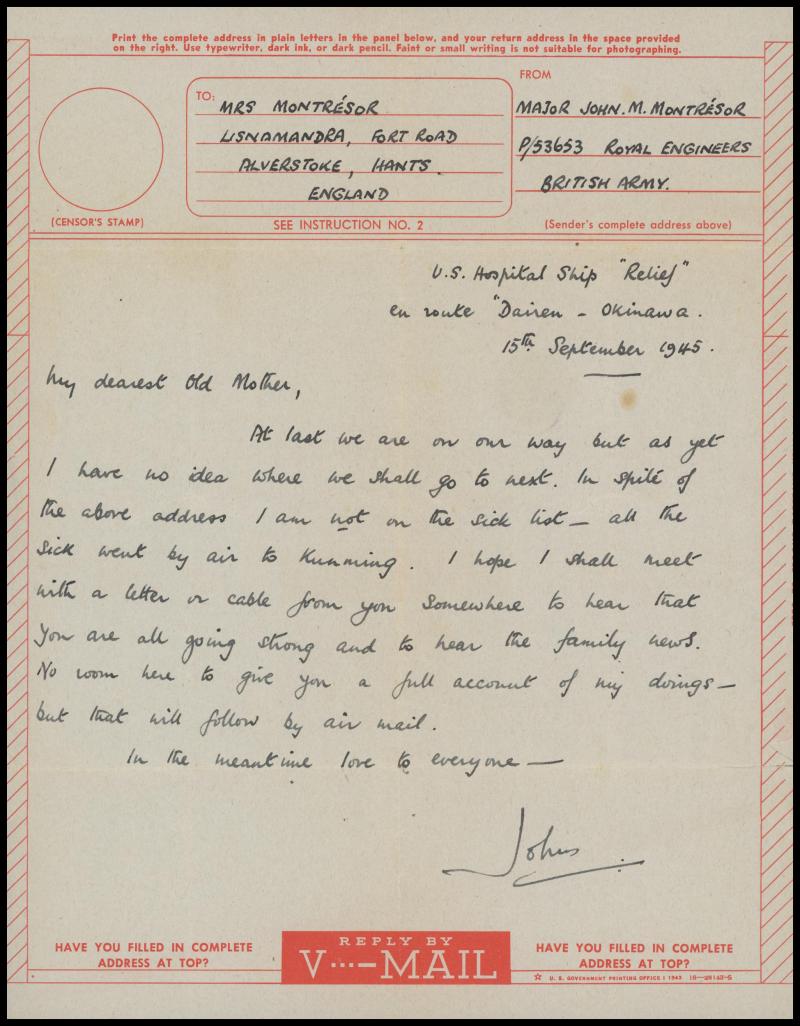 Print the complete address in plain letters in the panel below, and your return address in the space provided
on the right. Use typewriter, dark ink, or dark pencil. Faint or small writing is not suitable for photographing.
FROM
TO:
MRS MONTRÉSOR
LISNAMANDRA, FORT ROAD
ALVERSTOKE, HANTS.
ENGLAND
MAJOR JOHN. M. MONTRÉSOR
P/53653 ROYAL ENGINEERS
BRITISH ARMY.
(CENSOR'S STAMP)
SEE INSTRUCTION NO. 2
(Sender's complete address above)
U.S. Hospital Ship "Relief"
en route "Dairen - Okinawa.
15th September 1945.
My dearest Old Mother,
At last we are on our way but as yet
I have no idea where we shall go to next. In spite of
the above address I am not on the sick list - all the
sick went by air to Kunming. I hope I shall meet
with a letter or cable from you somewhere to hear that
you are all going strong and to hear the family news.
No room here to give you a full account of my doings -
but that will follow by air mail.
In the meantime love to everyone -
John
HAVE YOU FILLED IN COMPLETE
ADDRESS AT TOP?
REPLY BY
V···—MAIL
HAVE YOU FILLED IN COMPLETE
ADDRESS AT TOP?
☆ U. S. GOVERNMENT PRINTING OFFICE : 1943 16—28143-5